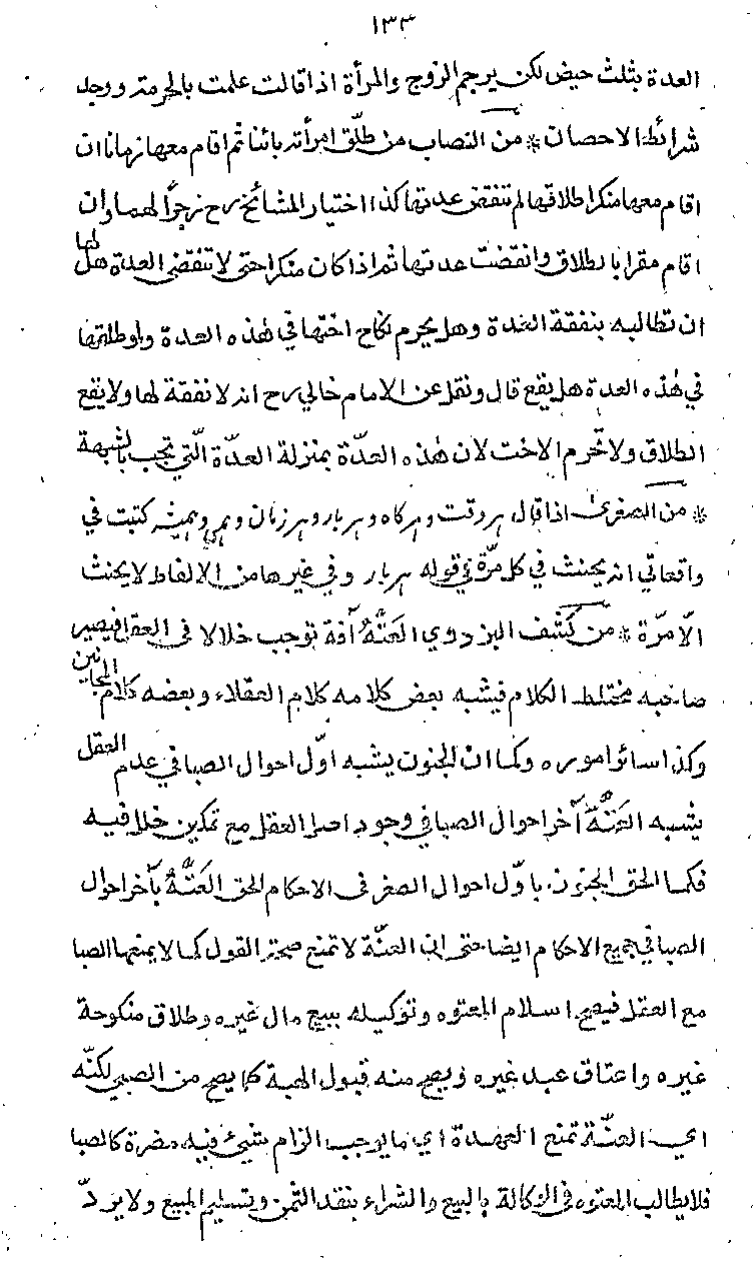 ١٣٣
العدة بثلث حيض لكن يرجم الزوج والمرأة اذا قالت علمت بالحرمة ووجد
شرائط الاحصان * من النصاب من طلّق امرأته بائنا ثم اقام معها زمانا ان
اقام معها منكرا طلاقها لم تنقض عدتها كذا اختيار المشائخ رح زجرًا لهما وان
اقام مقرا بالطلاق وانقضت عدتها ثم اذا كان منكرا حتى لا تنقضى العدة هل لها
ان تطالبه بنفقة العدة وهل يحرم نكاح اختها في هذه العدة ولو طلقها
في هذه العدة هل يقع قال ونقل عن الامام خالي رح انه لا نفقة لها ولا يقع
الطلاق ولا تحرم الاخت لان هذه العدّة بمنزلة العدّة التي تجب بالشبهة
* من الصغرىٰ اذا قال هر وقت وهر كاه وهر بار وهر زمان وهميشه كتبت في
واقعاتي انه يحنث في كل مرّة في قوله هر بار وفي غيرها من الالفاظ لا يحنث
الّا مرّة * من كشف البزدوي العَتَهُ آفة توجب خللا فى العقل فيصير
صاحبه مختلط الكلام فيشبه بعض كلامه كلام العقلاء وبعضه كلام المجانين
وكذا سائر اموره وكما ان الجنون يشبه اوّل احوال الصبا في عدم العقل
يشبه العَتَهُ آخر احوال الصبا في وجود اصل العقل مع تمكين خلل فيه
فكما الحق الجنون باوّل احوال الصغر فى الاحكام الحق العَتَهُ بآخر احوال
الصبا في جميع الاحكام ايضا حتى ان العته لا تمنع صحة القول كما لا يمنعها الصبا
مع العقل فيصح اسلام المعتوه وتوكيله ببيع مال غيره وطلاق منكوحة
غيره واعتاق عبد غيره ويصح منه قبول الهبة كما يصح من الصبي لكنّه
اي العته تمنع العهدة اي ما يوجب الزام شيئ فيه مضرة كالصبا
فلا يطالب المعتوه فى الوكالة بالبيع والشراء بنقد الثمن وتسليم المبيع ولا يردّ